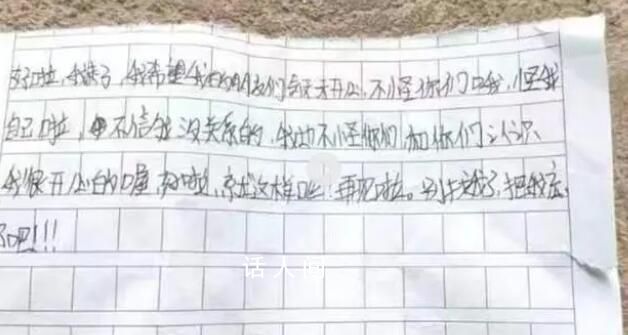 好啦，我走了，我希望我的朋友们每天开心，不怪你们哦，怪我
自己啦，不信我没关系的，我也不怪你们，和你们认识
我很开心的喔，好啦，就这样吧！再见啦。别找我了，把我忘
了吧!!!
话人间